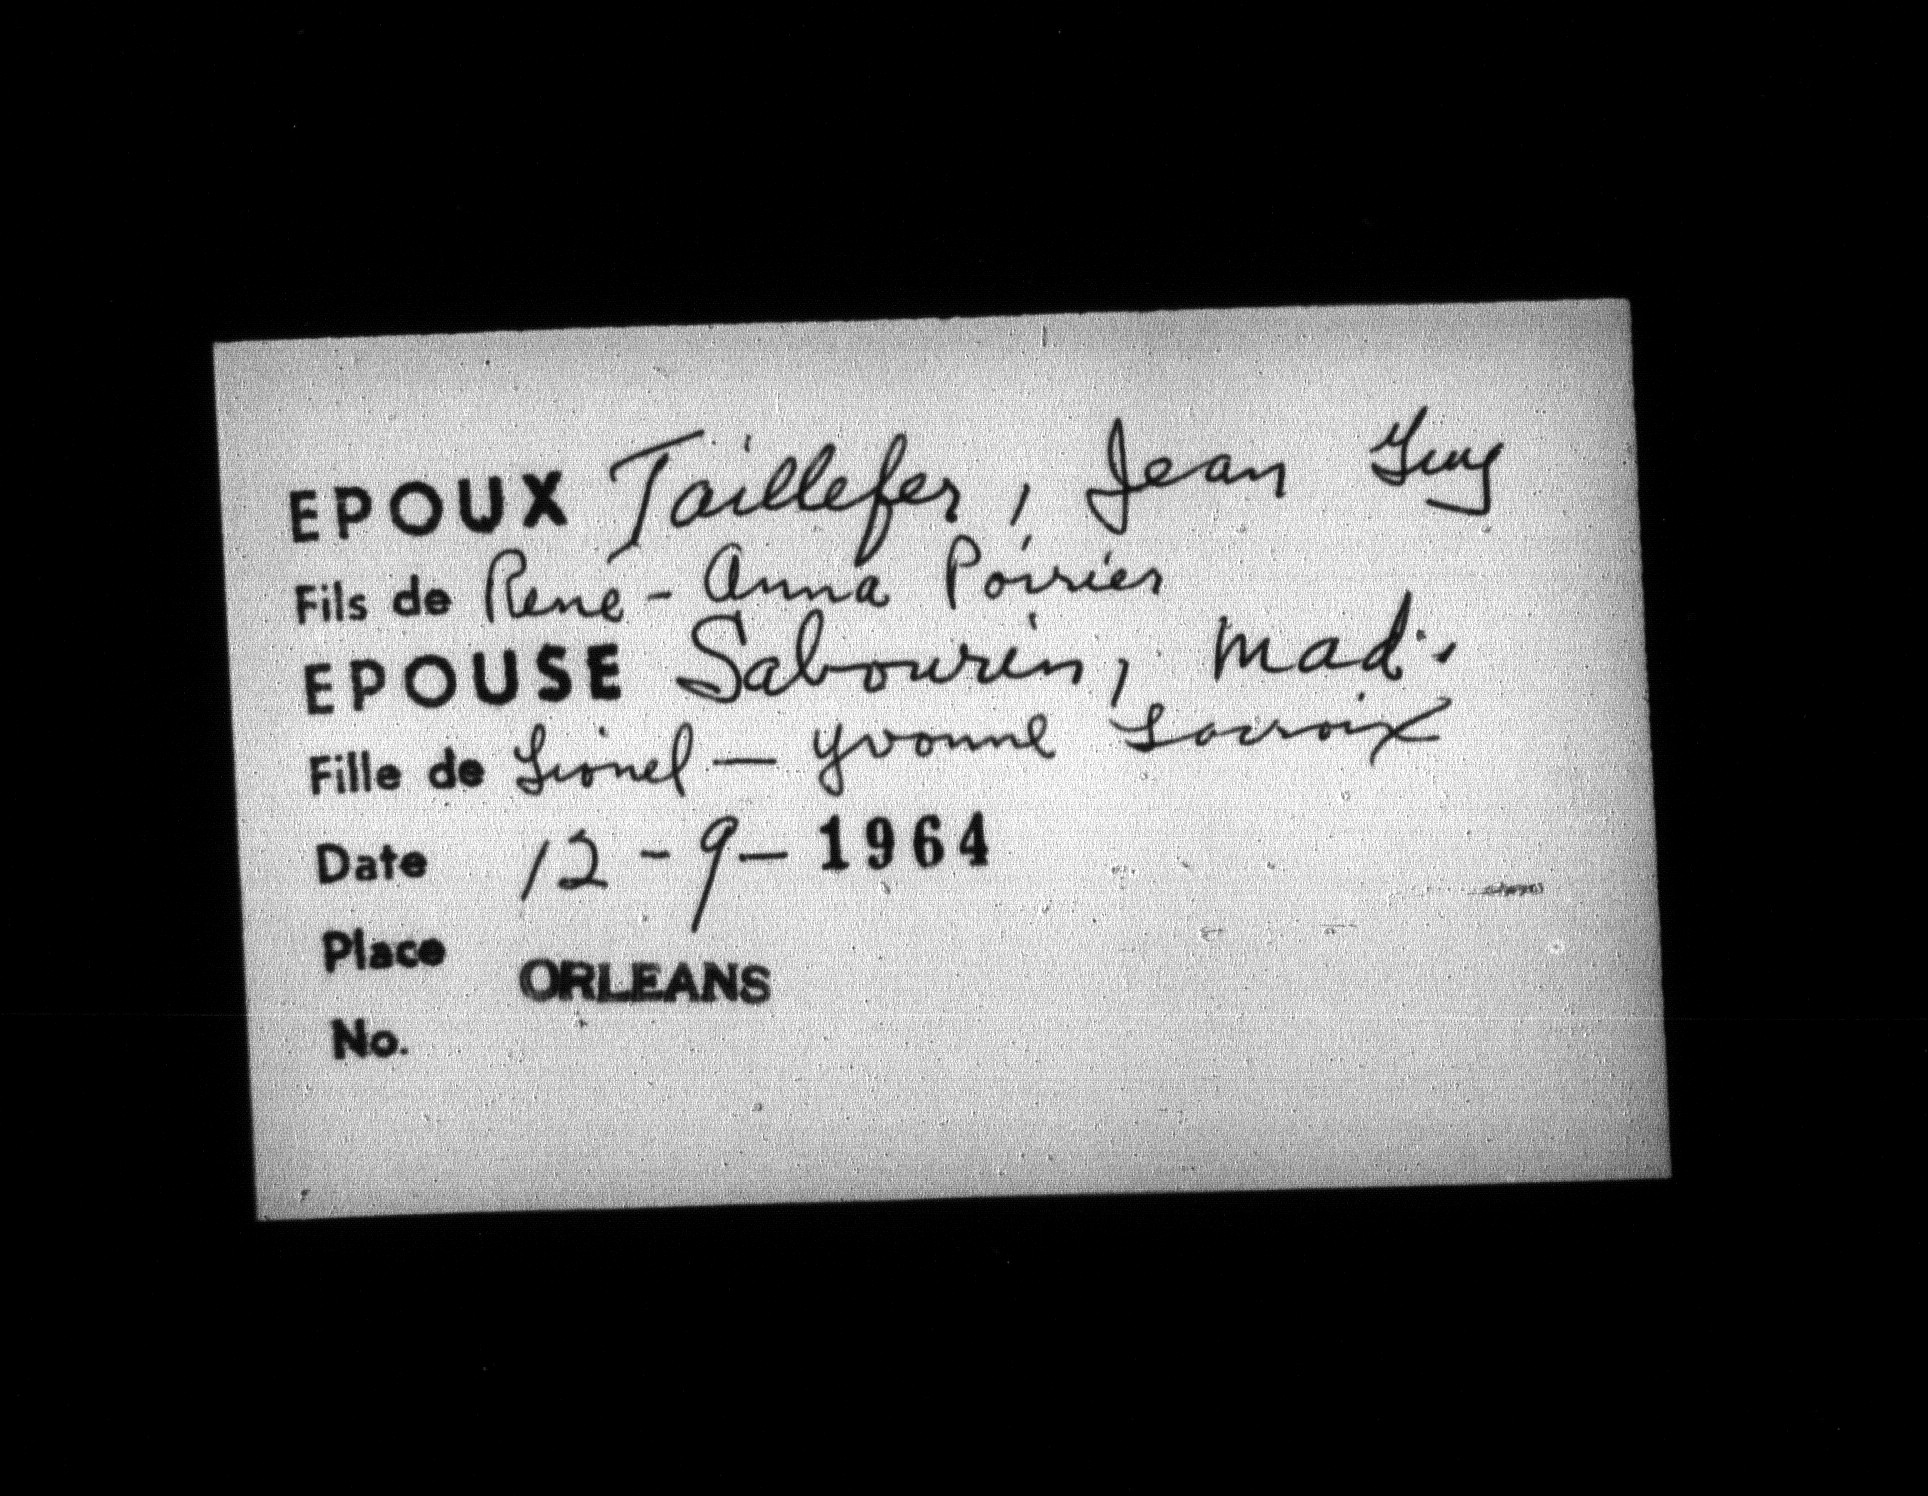 EPOUX Taillefer, Jean Guy
Fils de René - Anna Poirier
EPOUSE Sabourin, Mad.
Fille de Lionel — Yvonne Lacroix
Date 12 - 9 - 1964
Place ORLEANS
No.